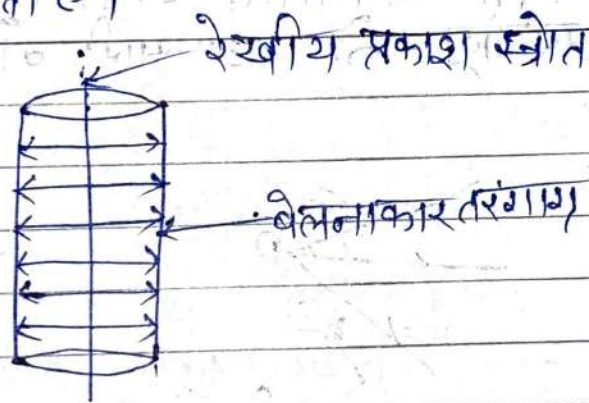 रेखीय प्रकाश स्त्रोत
बेलनाकार तरंगाग्र